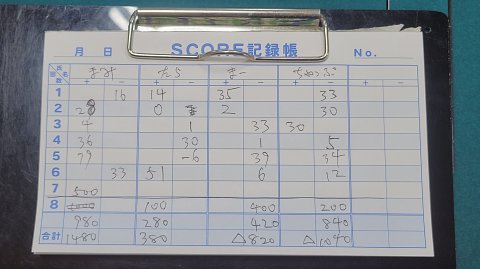 月 日 SCORE記録帳 No.
氏名 回数 まみ たら まー ちゃっぷ
+ - + - + - + -
1 16 14 35 33
2 28 0 2 30
3 4 1 33 30
4 36 30 1 5
5 79 -6 39 34
6 33 51 6 12
7 500
8 100 400 200
980 280 420 840
合計 1480 380 △820 △1040